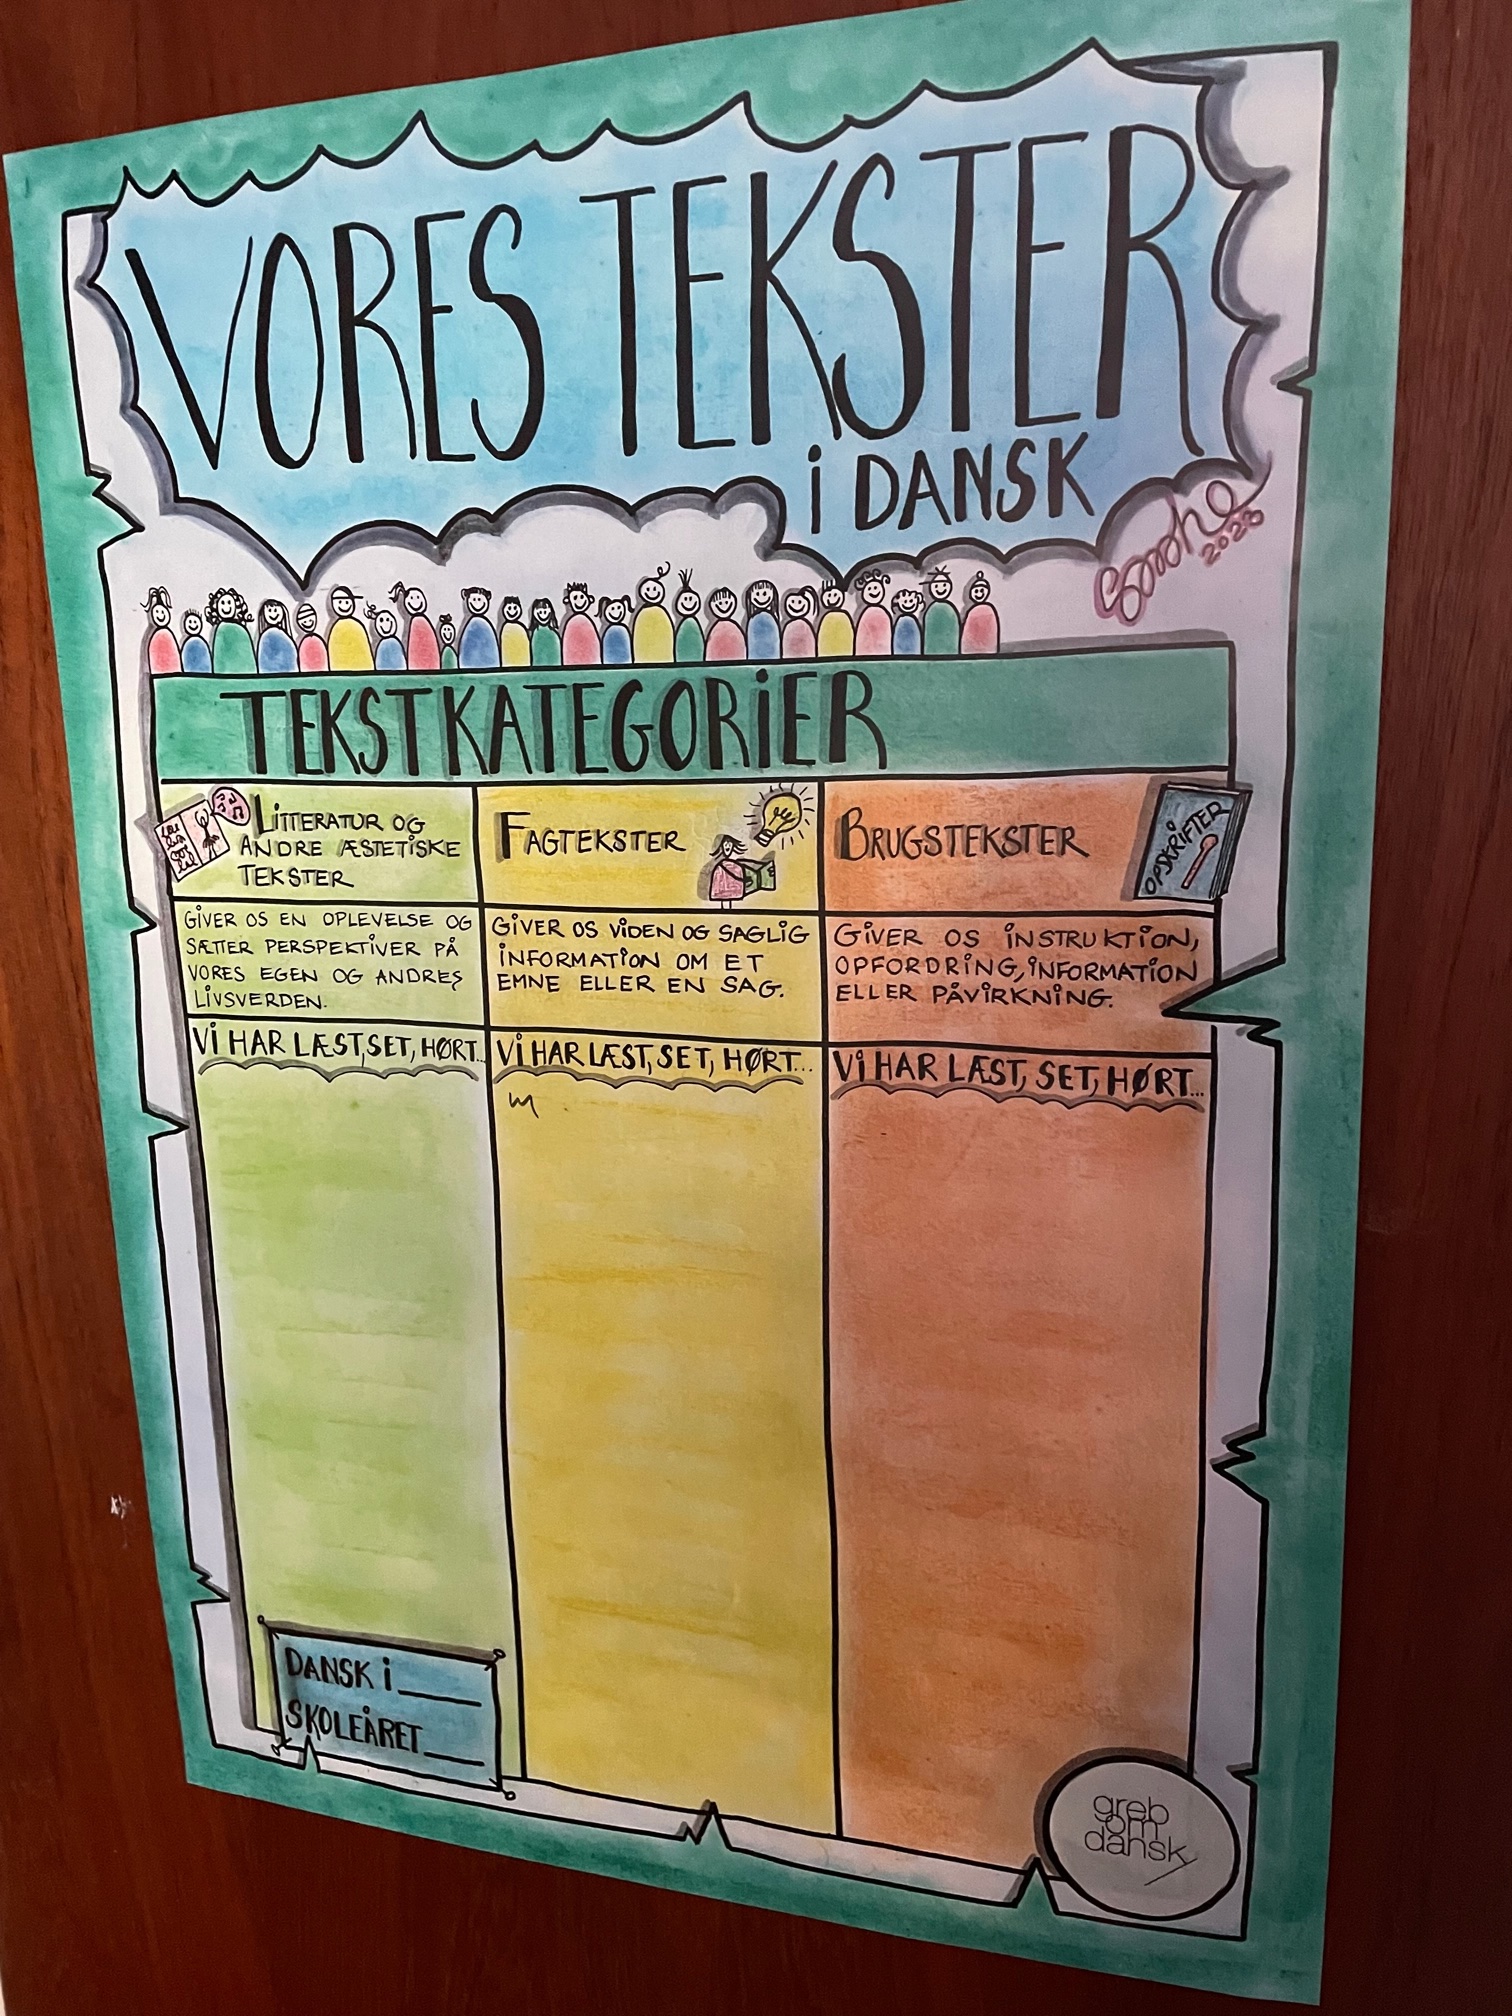 VORES TEKSTER
i DANSK
2020
TEKSTKATEGORiER
LITTERATUR OG
ANDRE ÆSTETISKE
TEKSTER
FAGTEKSTER
BRUGSTEKSTER
OPSKRIFTER
GIVER OS EN OPLEVELSE OG
SÆTTER PERSPEKTIVER PÅ
VORES EGEN OG ANDRES
LIVSVERDEN.
GIVER OS VIDEN OG SAGLIG
INFORMATION OM ET
EMNE ELLER EN SAG.
GIVER OS INSTRUKTION,
OPFORDRING, INFORMATION
ELLER PÅVIRKNING.
Vi HAR LÆST, SET, HØRT...
Vi HAR LÆST, SET, HØRT...
Vi HAR LÆST, SET, HØRT...
DANSK i ____
SKOLEÅRET ___
greb
om
dansk